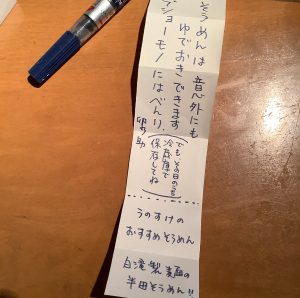 そうめんは意外にも
ゆでおきできます
ジョーモノにはべんり、
卯の助
(でも、その日のうち
冷蔵庫で
保存してね)
うのすけの
おすすめそうめん
白滝製麺の
半田そうめん!!